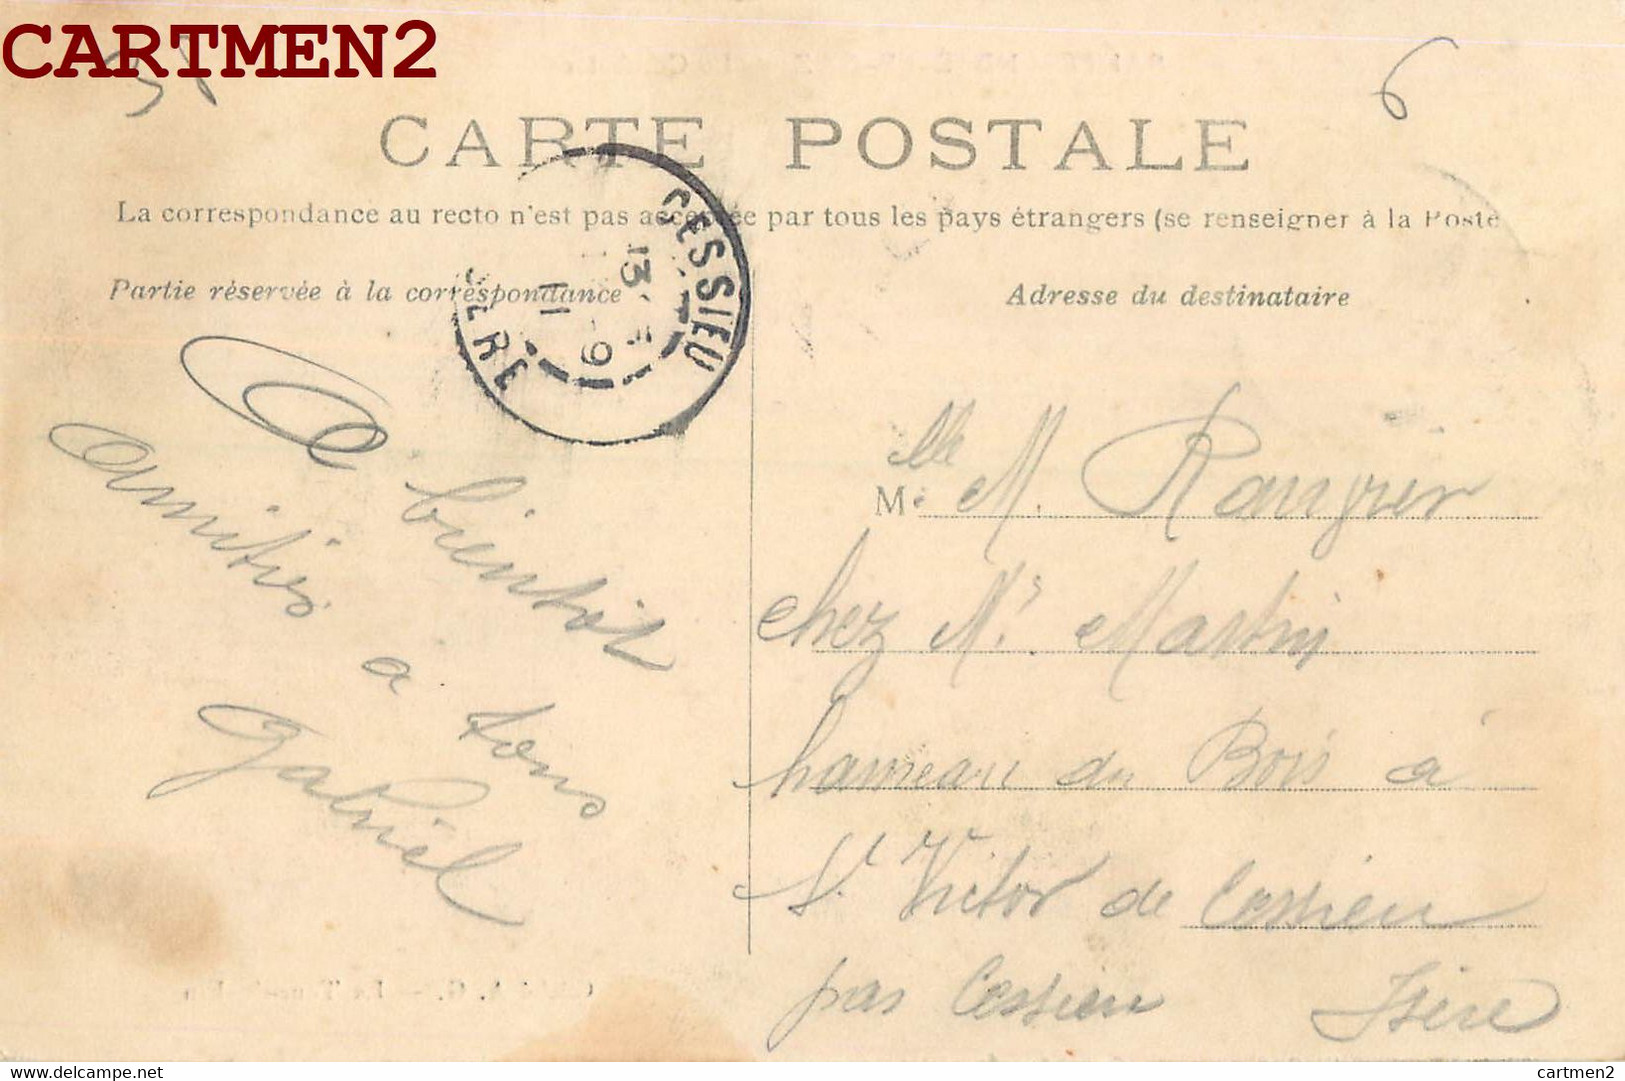 CARTMEN2
6
CARTE POSTALE
La correspondance au recto n'est pas acceptée par tous les pays étrangers (se renseigner à la Poste
Partie réservée à la correspondance
Adresse du destinataire
CESSIEU
13
11
ISÈRE
A bientôt
amitiés à tous
Gabriel
Mlle M.
chez Mr. Martin
hameau du Bois à
St Victor de Cessieu
par Cessieu Isère
delcampe.net
cartmen2